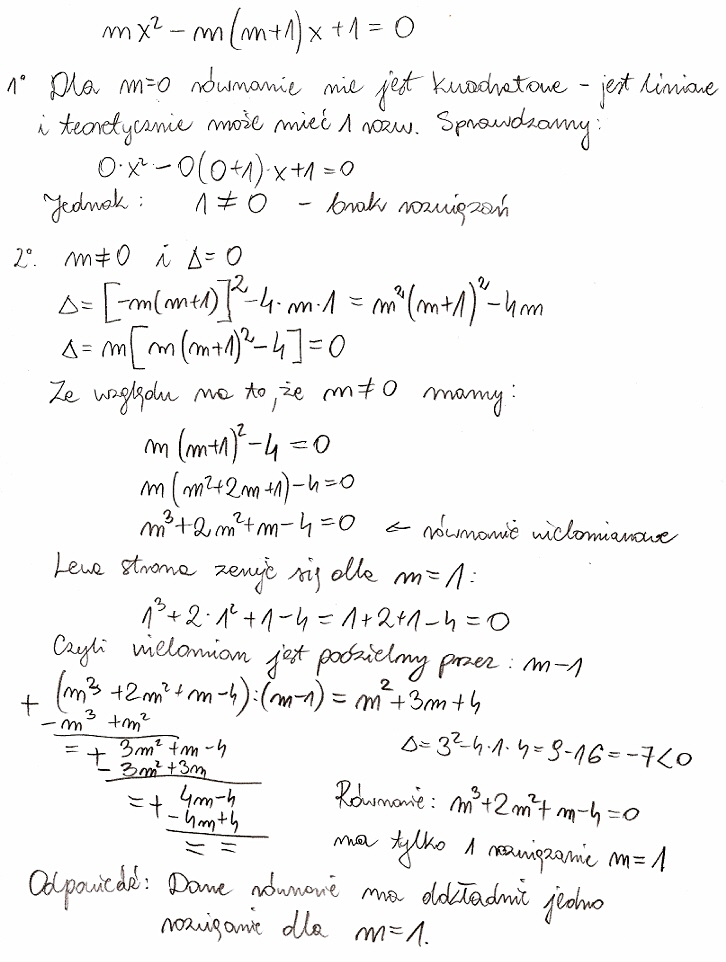 mx² - m(m+1)x + 1 = 0
1° Dla m=0 równanie nie jest kwadratowe - jest liniowe
i teoretycznie może mieć 1 rozw. Sprawdzamy:
0·x² - 0(0+1)·x + 1 = 0
Jednak: 1 ≠ 0 - brak rozwiązań
2°. m≠0 i Δ=0
Δ = [-m(m+1)]² - 4·m·1 = m²(m+1)² - 4m
Δ = m[m(m+1)² - 4] = 0
Ze względu na to, że m≠0 mamy:
m(m+1)² - 4 = 0
m(m²+2m+1) - 4 = 0
m³+2m²+m-4=0 ← równanie wielomianowe
Lewa strona zeruje się dla m=1:
1³+2·1²+1-4=1+2+1-4=0
Czyli wielomian jest podzielny przez: m-1
+ (m³+2m²+m-4):(m-1) = m²+3m+4
-m³ +m²
= + 3m²+m-4 Δ=3²-4·1·4=9-16=-7<0
- 3m²+3m
= + 4m-4 Równanie: m³+2m²+m-4=0
-4m+4
= = ma tylko 1 rozwiązanie m=1
Odpowiedź: Dane równanie ma dokładnie jedno
rozwiązanie dla m=1.